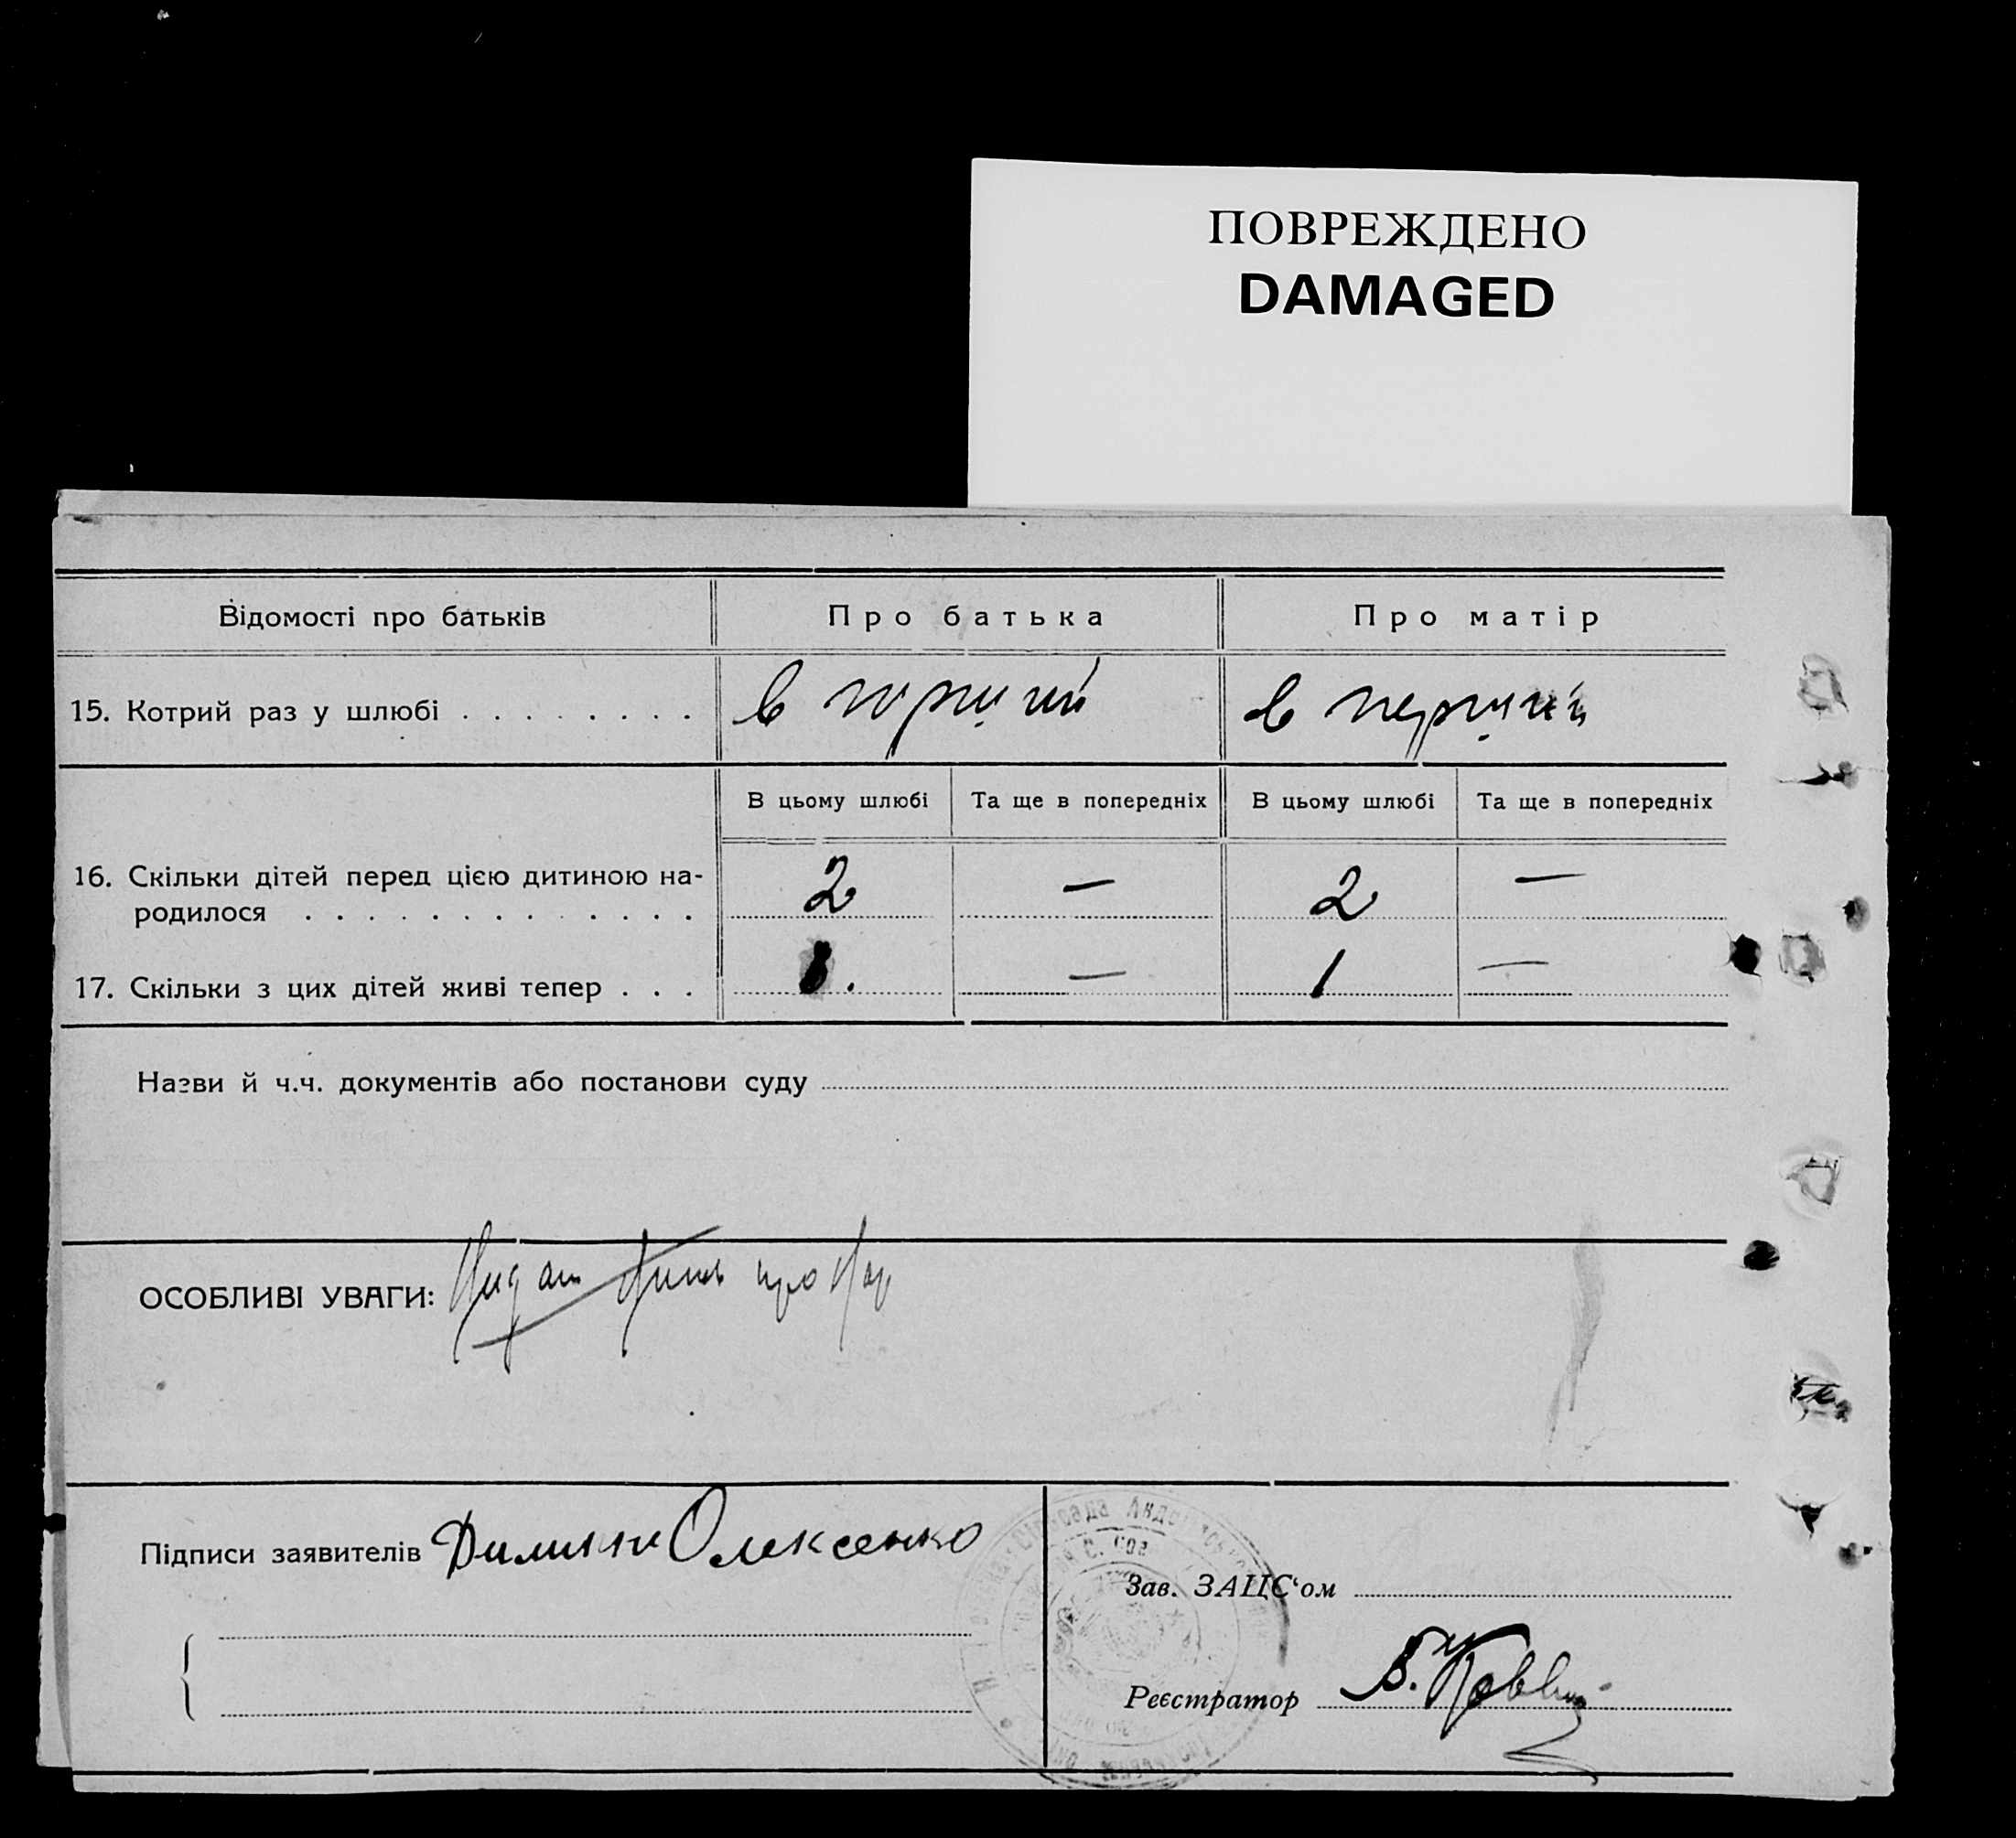 ПОВРЕЖДЕНО
DAMAGED
Відомості про батьків Про батька Про матір
15. Котрий раз у шлюбі . . . . . . . . в перший в перший
В цьому шлюбі Та ще в попередніх В цьому шлюбі Та ще в попередніх
16. Скільки дітей перед цією дитиною на-
родилося . . . . . . . . . . . . . . 2 — 2 —
17. Скільки з цих дітей живі тепер . . . — 1 —
Назви й ч.ч. документів або постанови суду
ОСОБЛИВІ УВАГИ: про
Підписи заявителів Олексенко
Зав. ЗАЦС'ом
Реєстратор В.